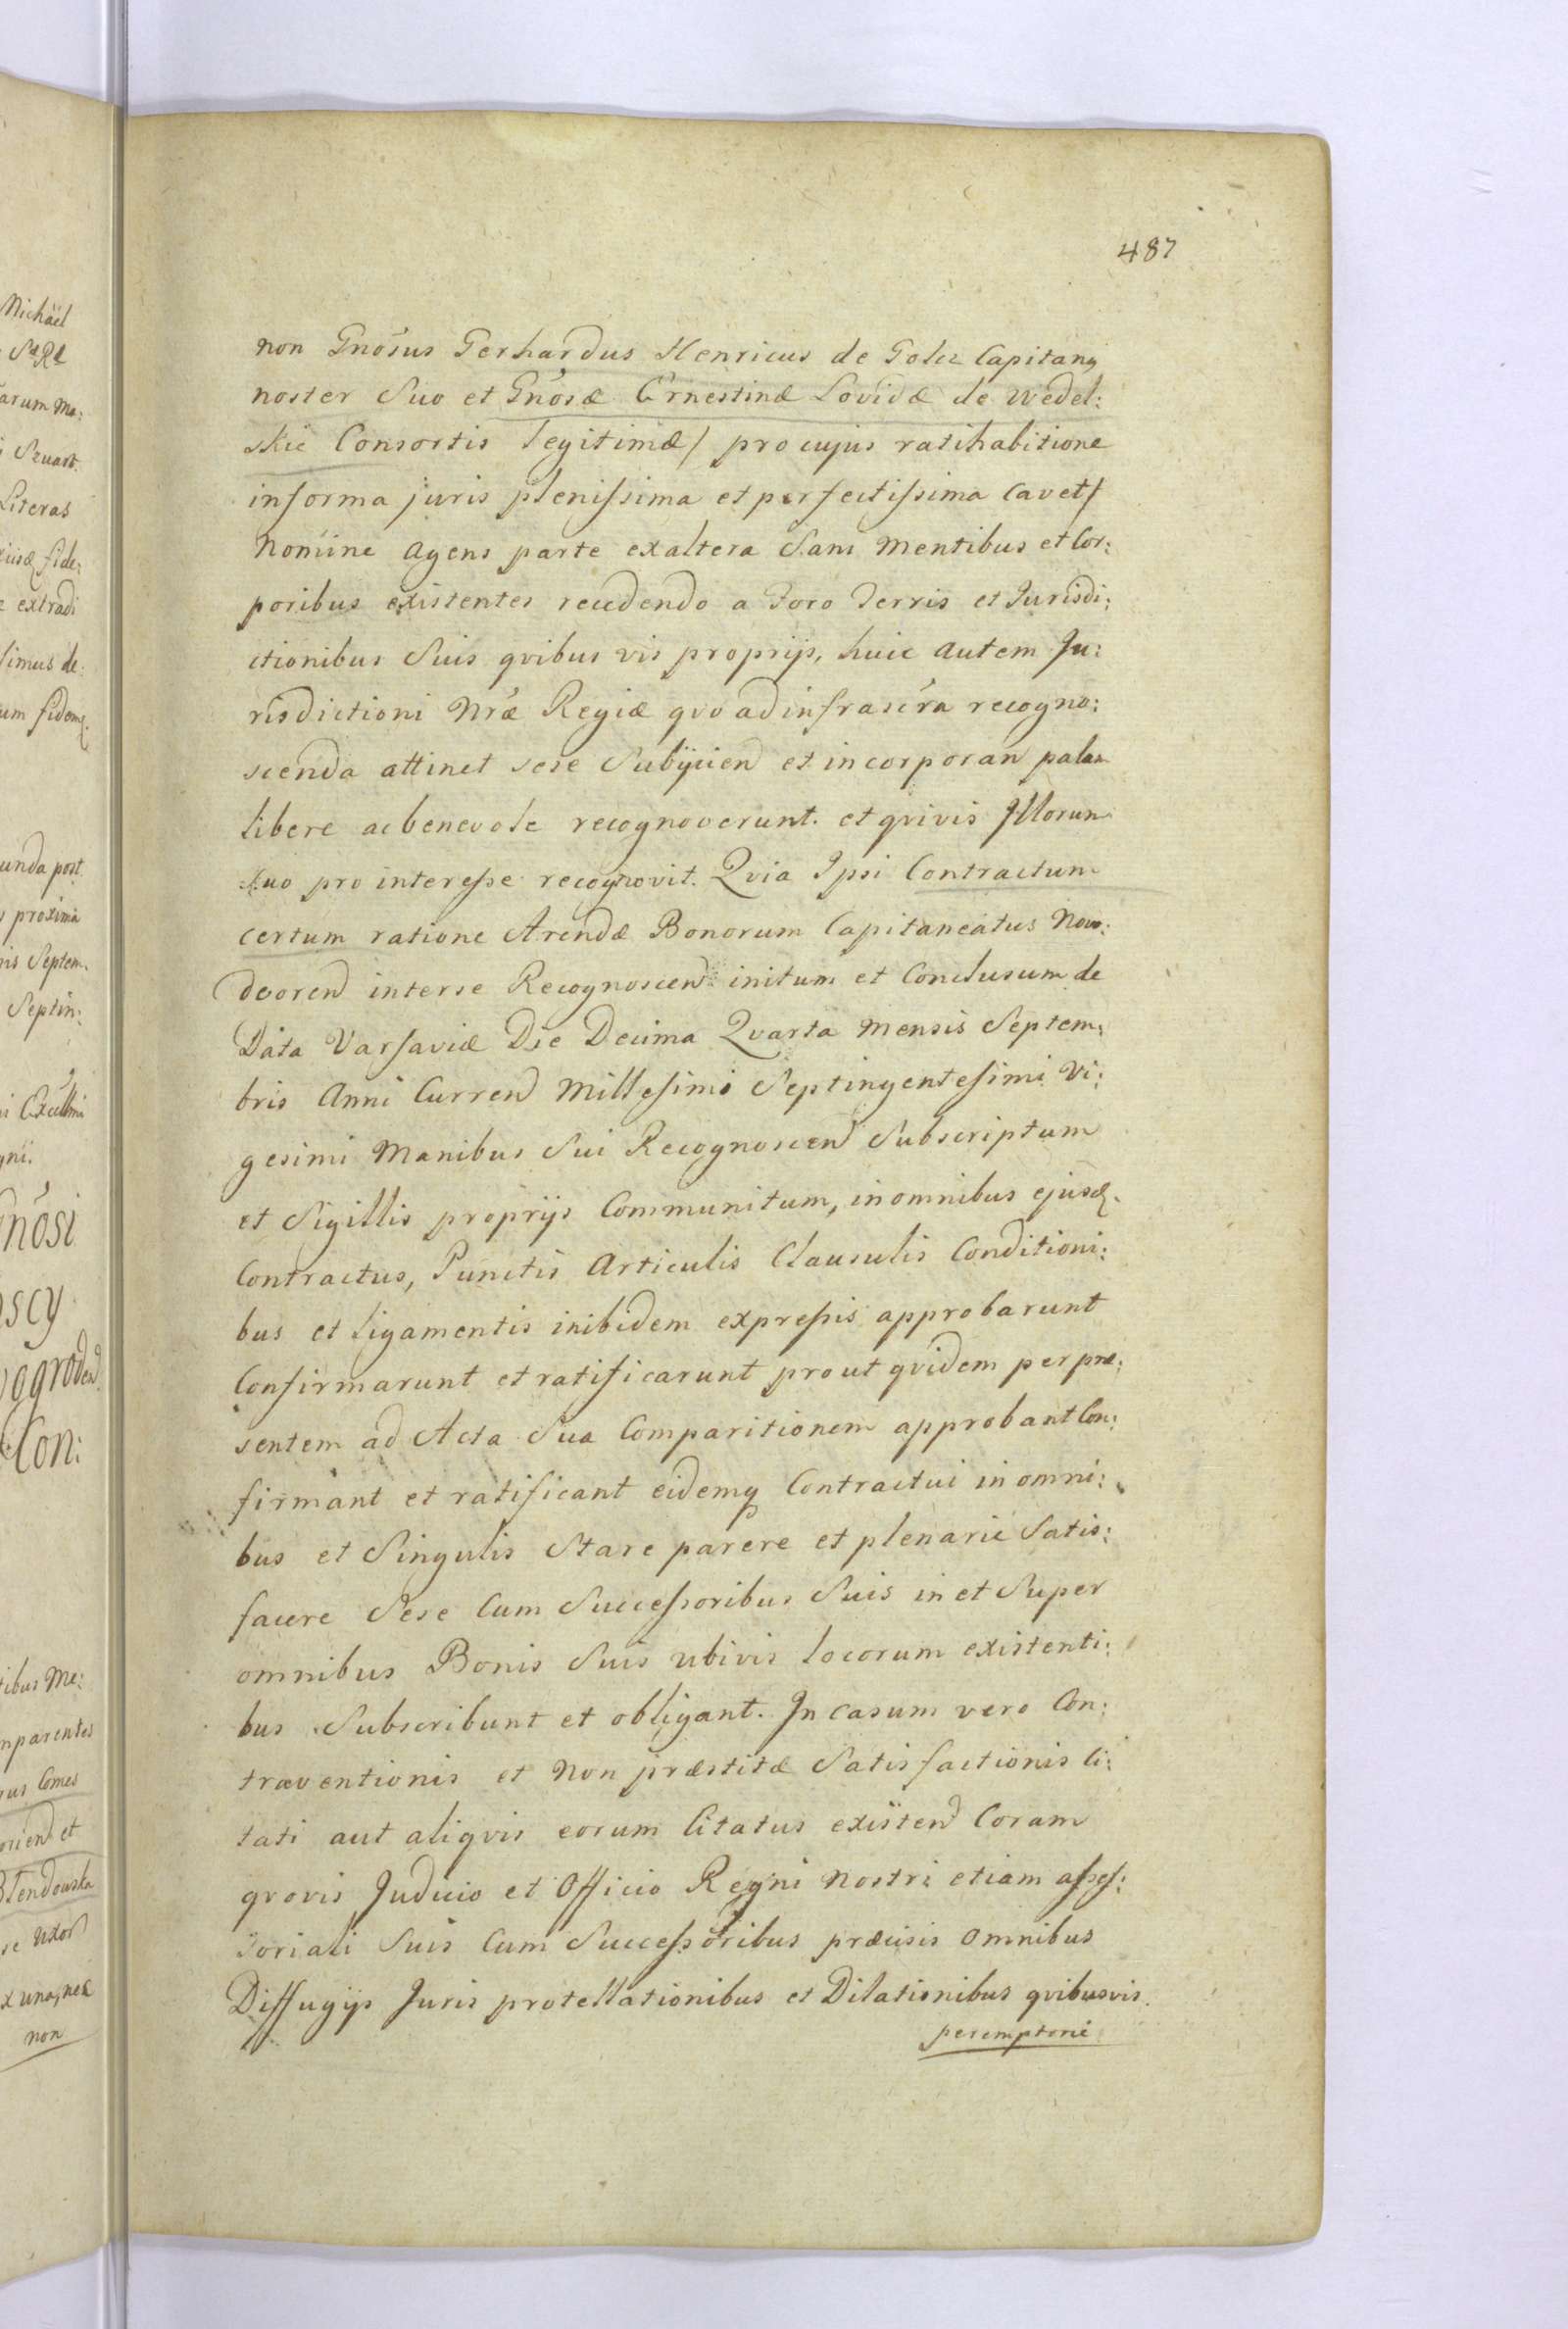 487
non Gnosus Gerhardus Henricus de Goltz Capitang
noster Suo et Gnosæ Ernestinæ Lovidæ de Wedel:
skie Consortis legitimæ/ pro cujus ratihabitione
informa juris plenissima et perfectissima cavet/
Nomine agens parte exaltera Sani mentibus et Cor:
poribus existentes recedendo a Foro Terris et Jurisdi:
ctionibus Suis qvibus vis proprijs, huic autem Ju:
risdictioni Nræ Regiæ qvo ad infrascra recogno:
scenda attinet sese Subijcien et incorporan palam
libere ac benevole recognoverunt. et qvivis Illorum
Suo pro interesse recognovit. Qvia Ipsi Contractum
certum ratione Arendæ Bonorum Capitaneatus Novo:
dvoren interse Recognoscen initum et Conclusum de
Data Varsaviæ Die Decima Qvarta Mensis Septem:
bris Anni Curren Millesimi Septingentesimi Vi:
gesimi Manibus Sui Recognoscen Subscriptum
et Sigillis proprijs Communitum, in omnibus ejusd.
Contractus, Punctis Articulis Clausulis Conditioni:
bus et ligamentis inibidem expressis approbarunt
Confirmarunt et ratificarunt prout qvidem per præ:
sentem ad Acta Sua Comparitionem approbant Con:
firmant et ratificant eidemq Contractui in omni:
bus et Singulis Stare parere et plenarie Satis:
facere Sese Cum Successoribus Suis in et Super
omnibus Bonis Suis ubivis locorum existenti:
bus Subscribunt et obligant. In casum vero Con:
traventionis et non præstitæ Satisfactionis Ci:
tati aut aliqvis eorum Citatus existen Coram
qvovis Judicio et Officio Regni Nostri etiam asses:
soriali Suis Cum Successoribus præcisis omnibus
Diffugijs Juris protellationibus et Dilationibus qvibusvis.
peremptorie
Michäel
arum Ma:
Szwart.
Literas
extradi
simus de.
unda post
proxima
nis Septem.
Septin:
gnosi
Con:
tibus Me:
mparentes
Comes
et
x una, nec
non